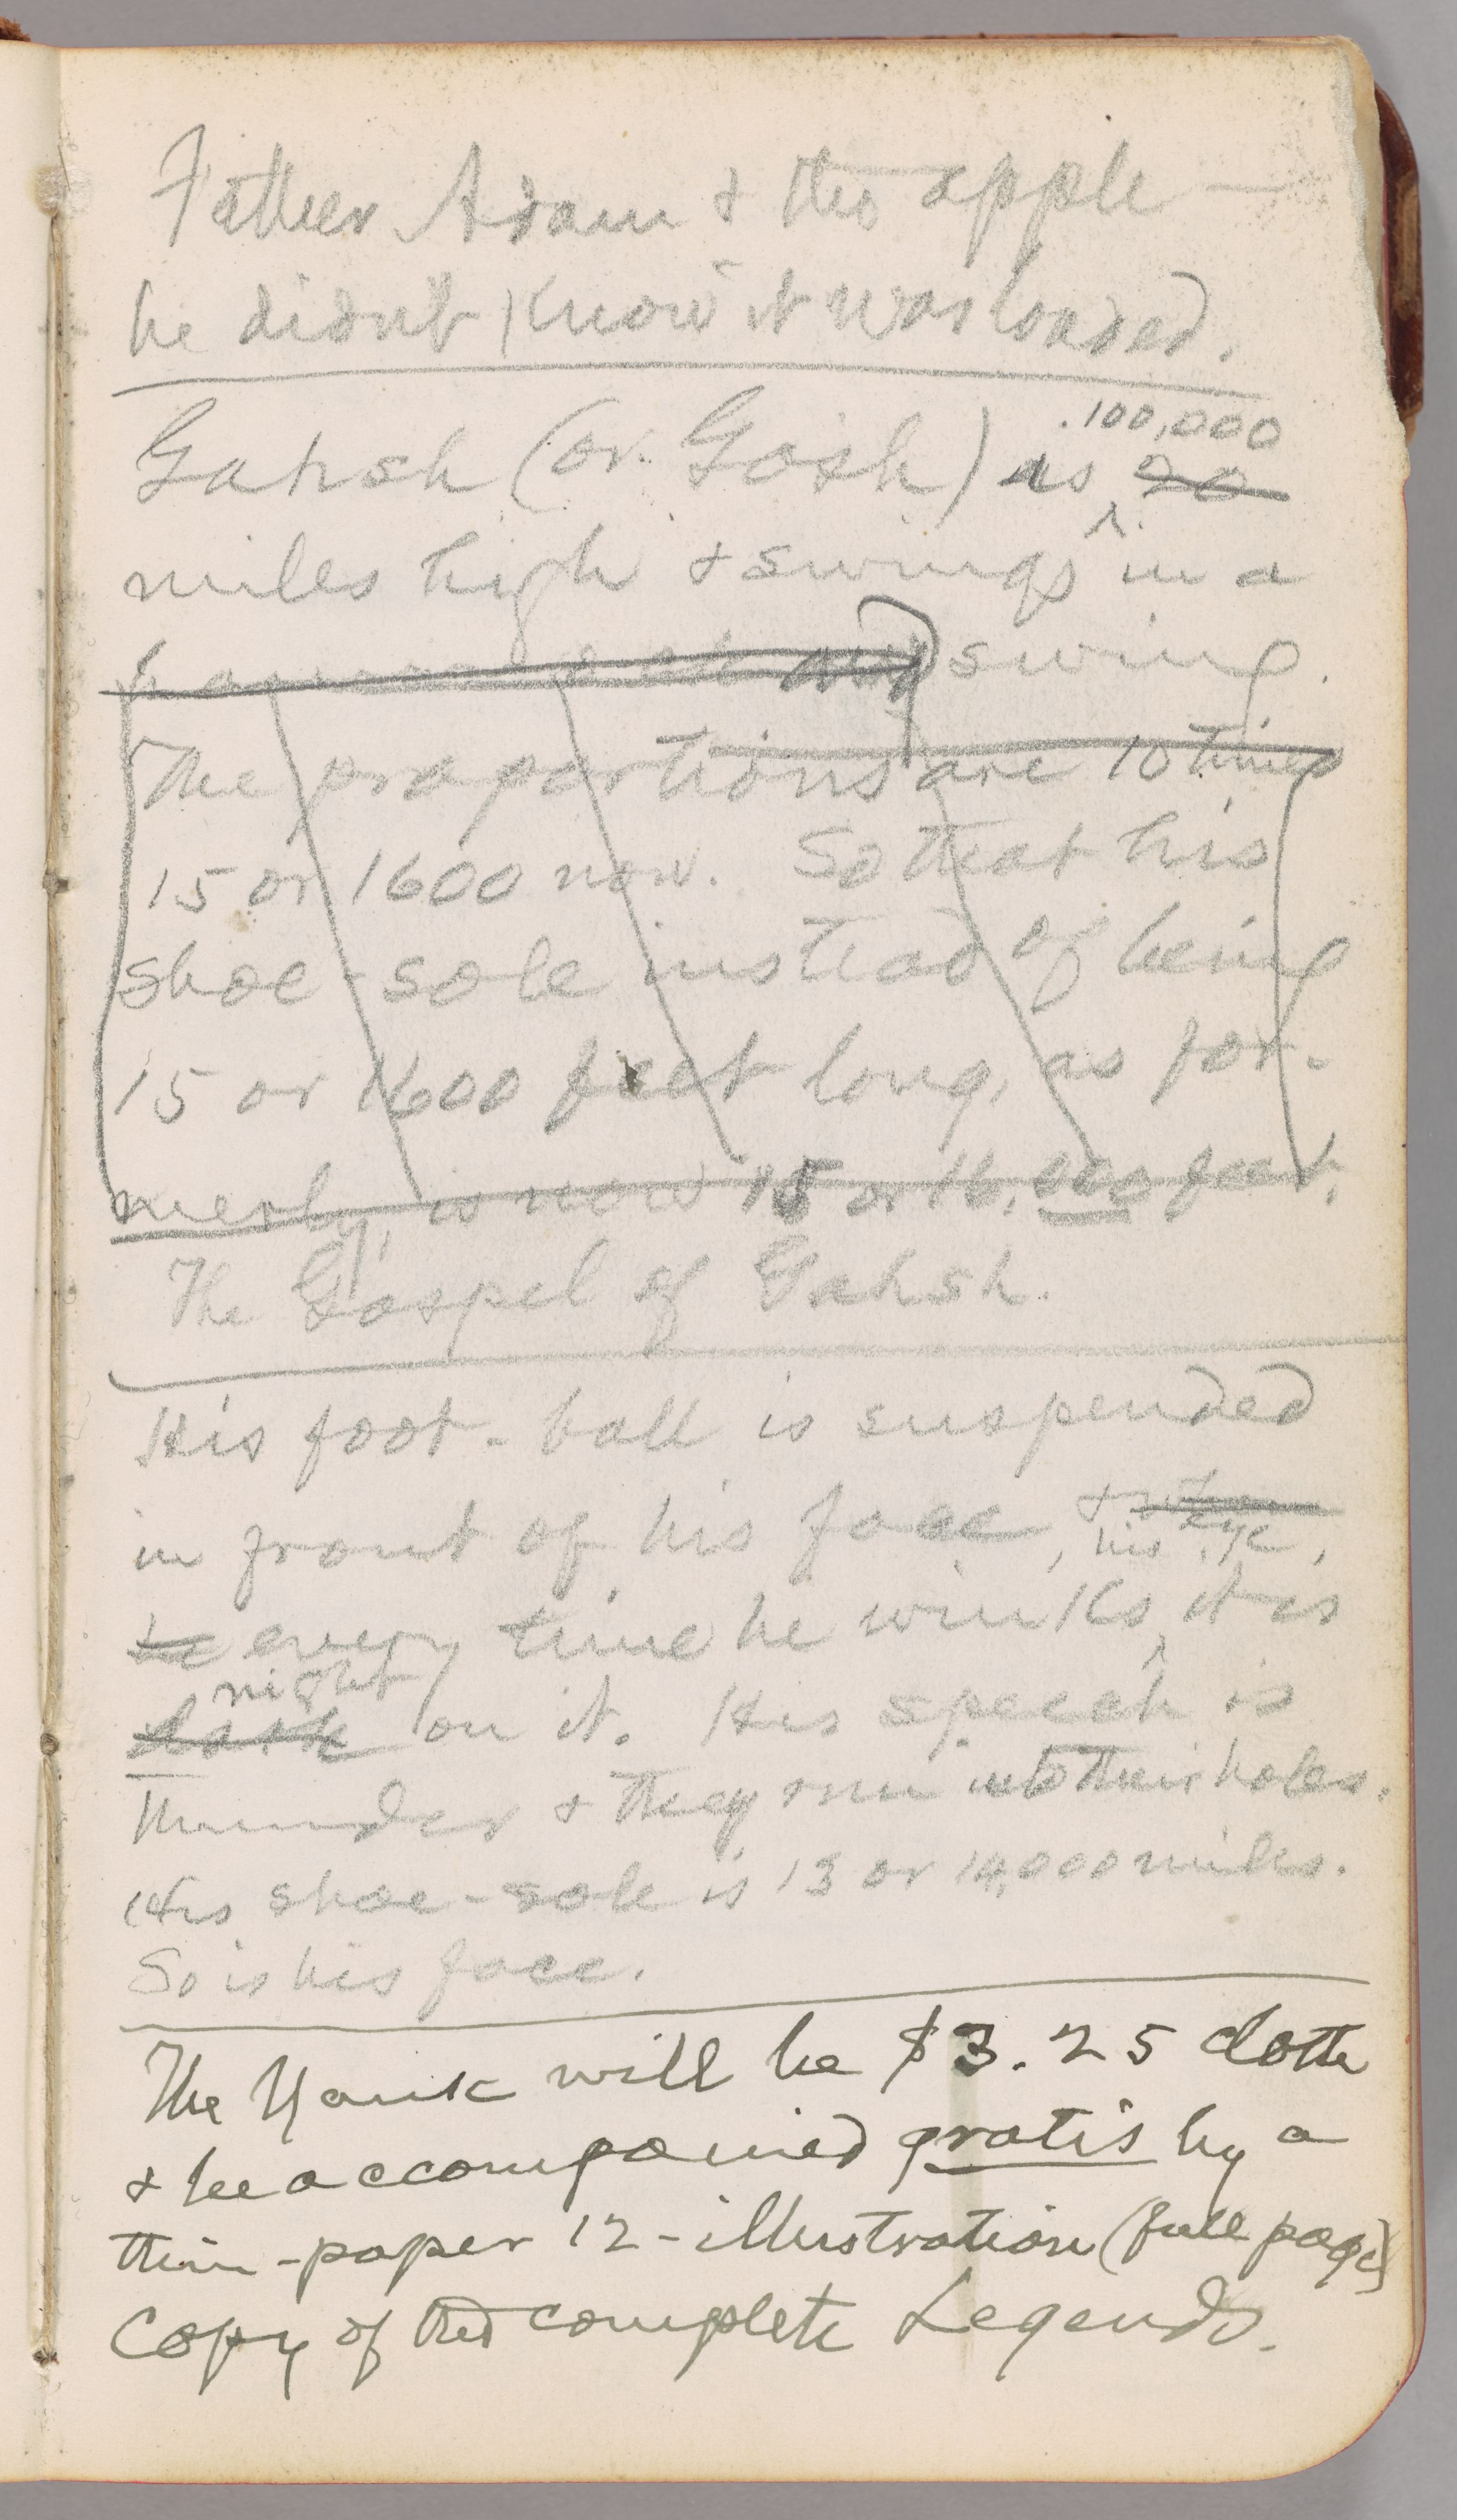 Father Adam & the apple —
he didn't know it was loaded.
Gahsh (or Gosh) is 100,000 20
miles high & swings in a
swing.
The proportions are 10 times
15 or 1600 now. So that his
shoe-sole instead of being
15 or 1600 feet long, as for-
merly, is now 15 or 16,000 feet.
The Gospel of Gahsh.
His foot-ball is suspended
in front of his face, & when his eye,
he every time he winks, it is
dark night on it. His speech is
thunder & they run into their holes.
His shoe-sole is 13 or 14,000 miles.
So is his face.
The Yank will be $3.25 cloth
& be accompanied gratis by a
thin-paper 12-illustration (full page)
copy of the complete Legends.